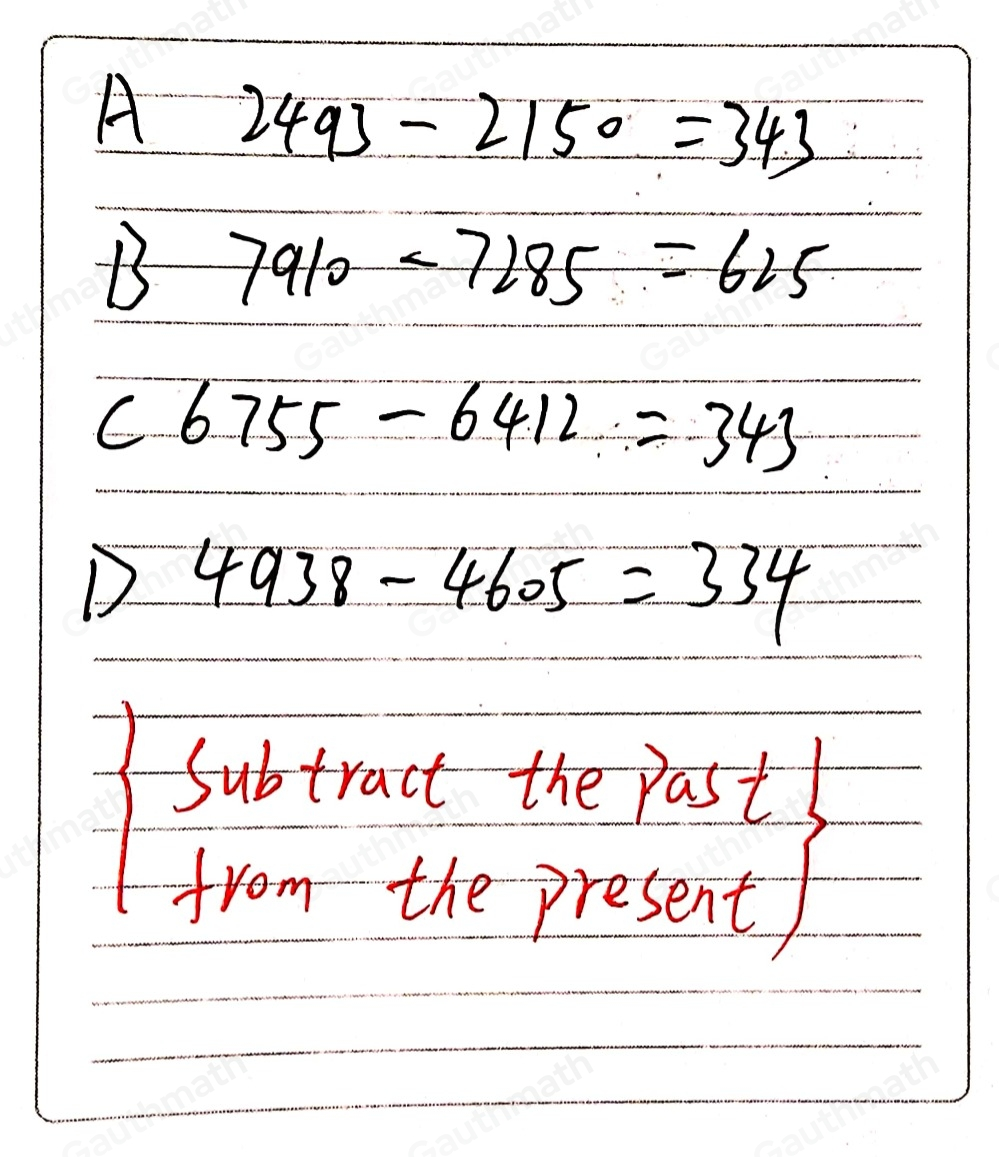 A 2493 - 2150 = 343
B 7910 - 7285 = 625
C 6755 - 6412 = 343
D 4938 - 4605 = 334
{ Subtract the past
from the present }